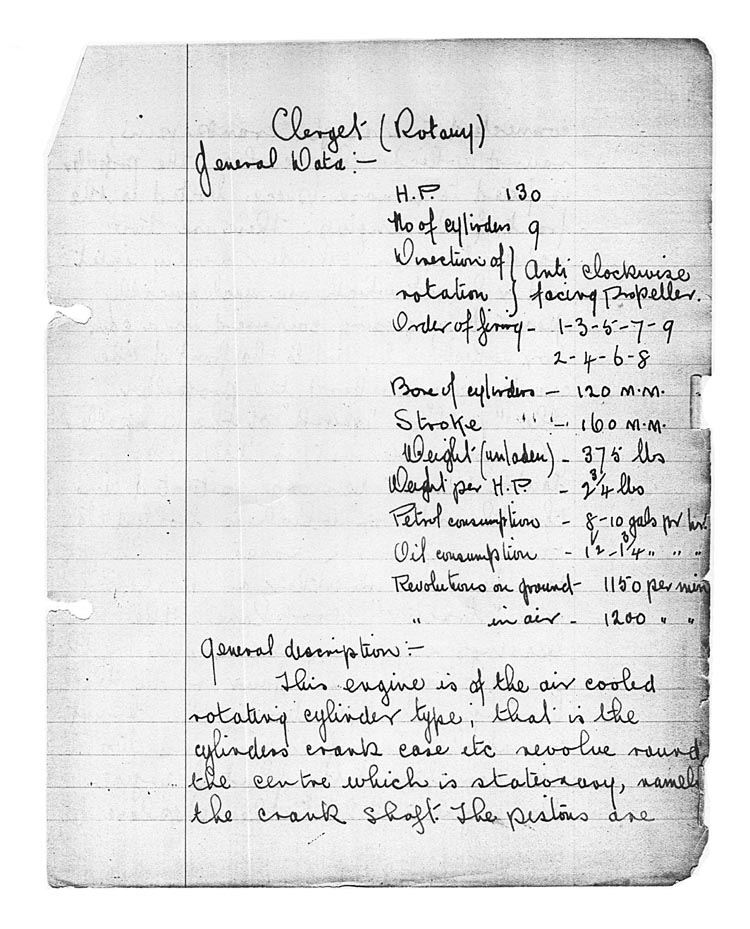 Clerget (Rotary)
General Data :-
H.P. 130
No of cylinders 9
Direction of } Anti clockwise
rotation } facing Propeller.
Order of firing - 1-3-5-7-9
2-4-6-8
Bore of cylinders - 120 m.m.
Stroke " " - 160 m.m.
Weight (unladen) - 375 lbs
Weight per H.P. - 2 3/4 lbs
Petrol consumption - 8-10 gals pr hr.
Oil consumption - 1 1/2 - 1 3/4 " " "
Revolutions on ground - 1150 per min
" in air - 1200 " "
General description :-
This engine is of the air cooled
rotating cylinder type; that is the
cylinders crank case etc revolve round
the centre which is stationary, namely
the crank shaft. The pistons are